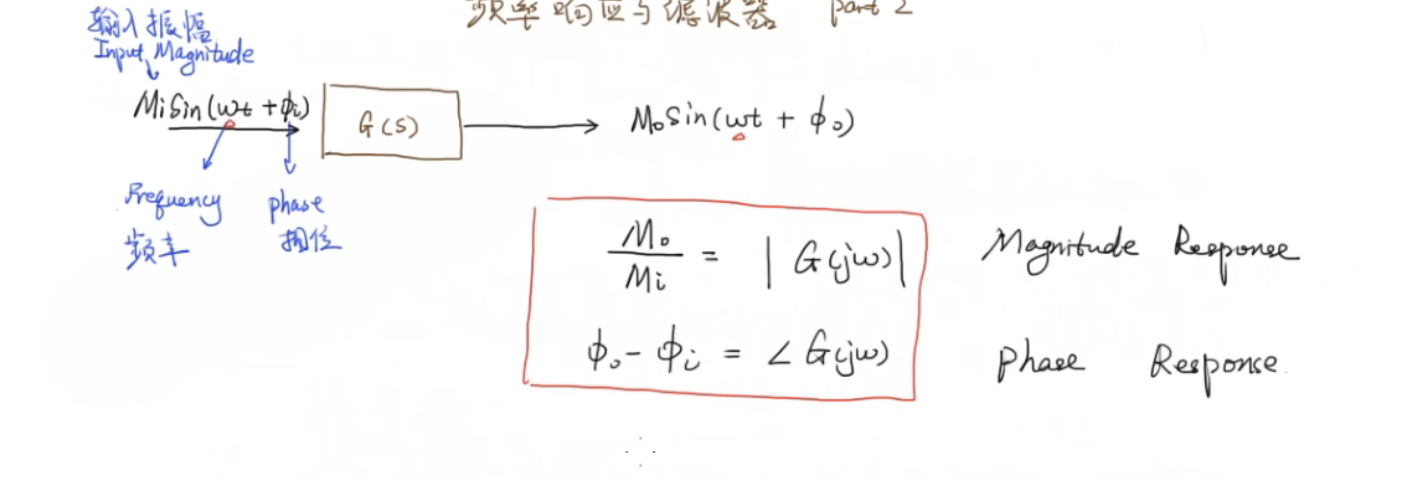 频率响应与滤波器 part 2
输入振幅
Input Magnitude
Mi Sin(ωt + ϕi)
G(s)
Mo Sin(ωt + ϕo)
Frequency
频率
phase
相位
Mo/Mi = |G(jω)|
Magnitude Response
ϕo - ϕi = ∠G(jω)
Phase Response